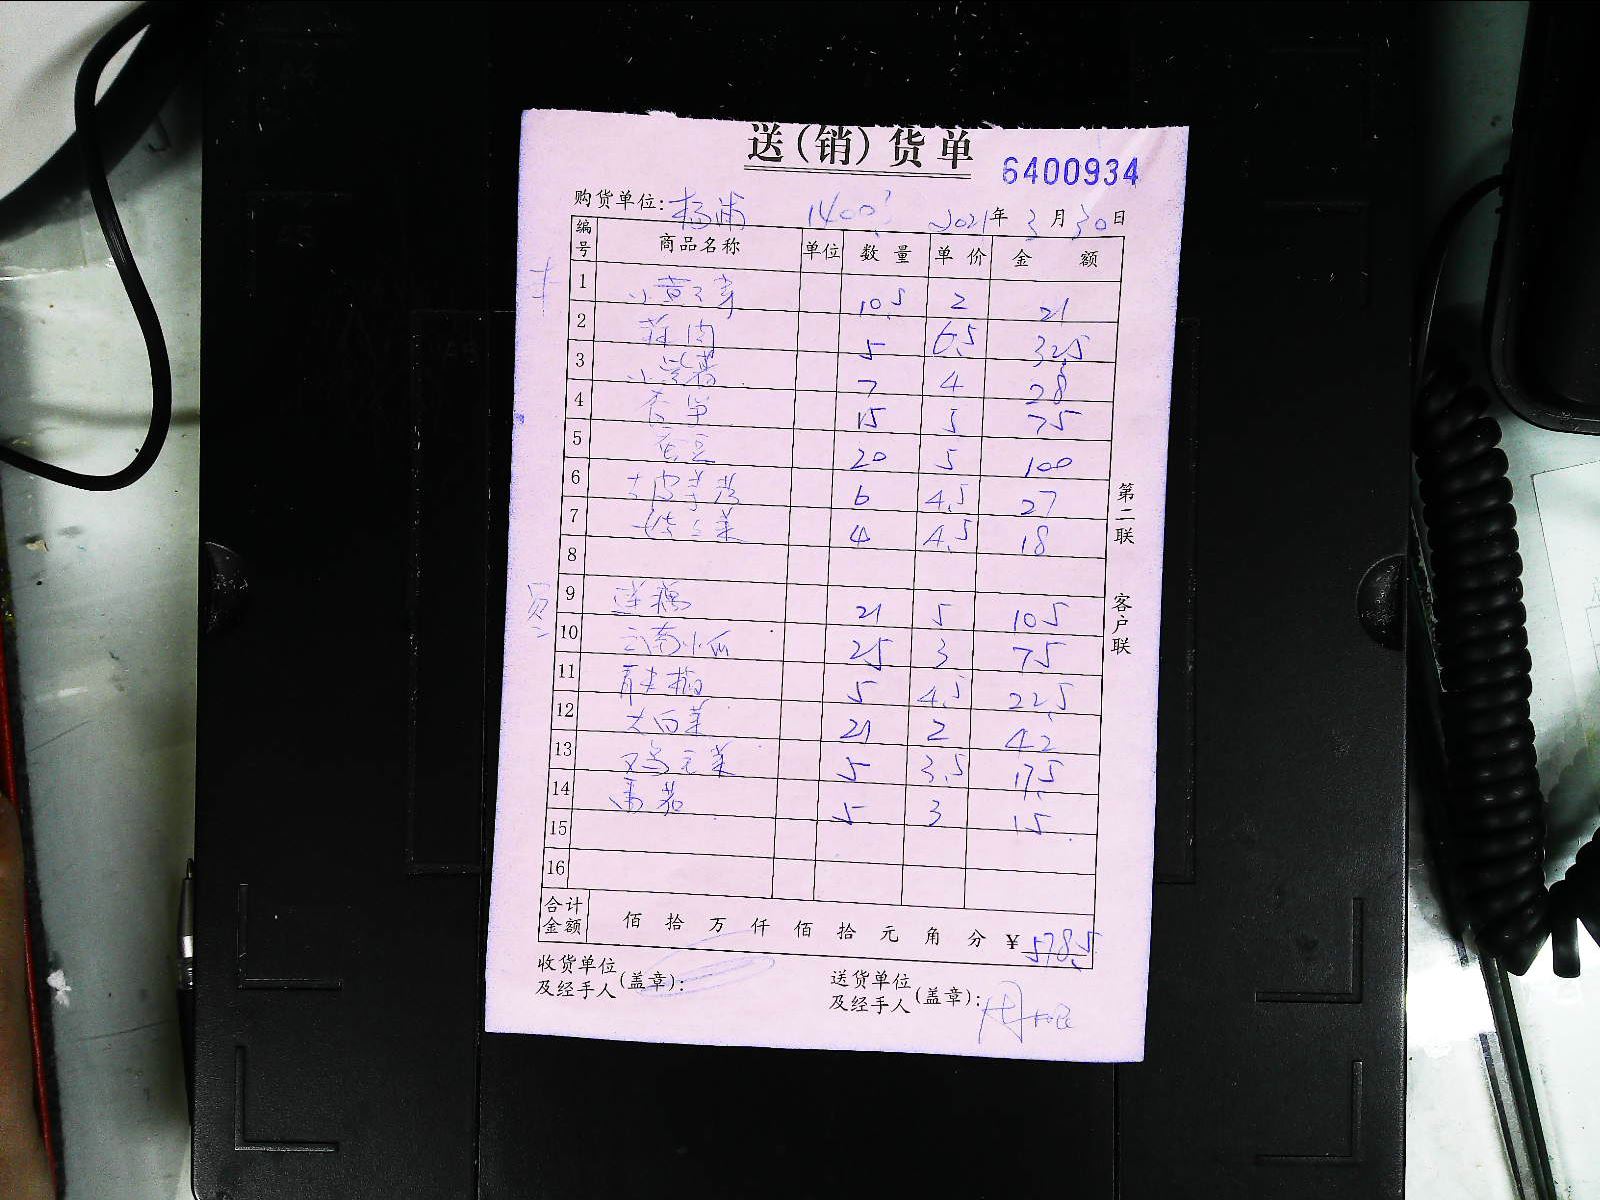 送(销)货单
6400934
购货单位: 杨浦 1400 2021年 3月30日
编号 商品名称 单位 数量 单价 金额
1 小黄芽 10.5 2 21
2 蒜肉 5 6.5 32.5
3 小紫薯 7 4 28
4 春笋 15 5 75
5 蚕豆 20 5 100
6 去皮芋艿 6 4.5 27
7 4 4.5 18
8
9 莲藕 21 5 105
10 云南小瓜 25 3 75
11 青尖椒 5 4.5 22.5
12 大白菜 21 2 42
13 菜 5 3.5 17.5
14 番茄 5 3 15
15
16
合计金额 佰 拾 万 仟 佰 拾 元 角 分 ¥578.5
收货单位及经手人(盖章): 送货单位及经手人(盖章):
第二联 客户联